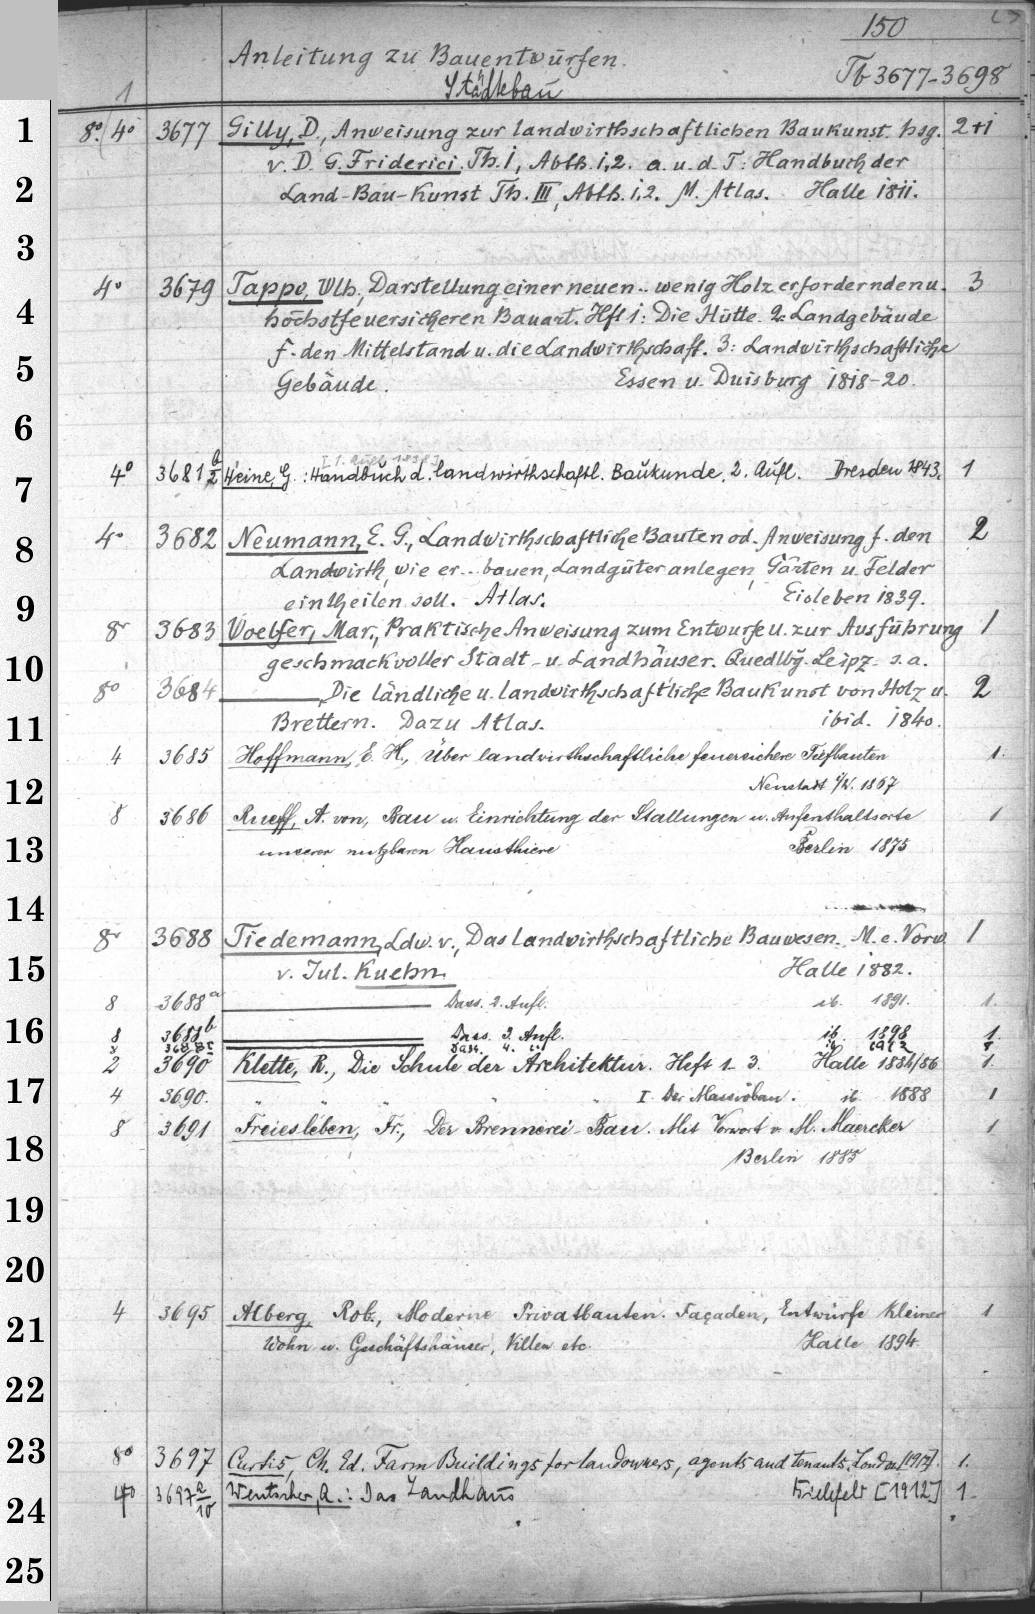 150
Anleitung zu Bauentwürfen.
Städtebau
Tb 3677-3698
1
1 8°/4° 3677 Gilly, D., Anweisung zur landwirthschaftlichen Baukunst hsg. 2+1
v. D. G. Friderici. Th. I, Abth. 1,2. a. u. d. T: Handbuch der
2 Land-Bau-Kunst Th. III, Abth. 1,2. M. Atlas. Halle 1811.
3
4° 3679 Tappe, Wlh., Darstellung einer neuen .. wenig Holz erfordernden u. 3
4 höchstfeuersicheren Bauart. Hft 1: Die Hütte. 2: Landgebäude
5 f. den Mittelstand u. die Landwirthschaft. 3: Landwirthschaftliche
Gebäude. Essen u. Duisburg 1818-20.
6
7 4° 3681 b/2 Heine, G.: Handbuch d. landwirthschaftl. Baukunde. 2. Aufl. Dresden 1843. 1
8 4° 3682 Neumann, E. G., Landwirthschaftliche Bauten od. Anweisung f. den 2
Landwirth, wie er .. bauen, Landgüter anlegen, Gärten u. Felder
9 eintheilen soll. Atlas. Eisleben 1839.
8° 3683 Woelfer, Mar., Praktische Anweisung zum Entwurfe u. zur Ausführung 1
10 geschmackvoller Stadt- u. Landhäuser. Quedlbg. Leipz. s. a.
8° 3684 ——— Die ländliche u. landwirthschaftliche Baukunst von Holz u. 2
11 Brettern. Dazu Atlas. ibid. 1840.
4 3685 Hoffmann, E. H., Über landwirthschaftliche feuersichere Tiefbauten 1.
12 Neustadt 1867
8 3686 Rueff, A. von, Bau u. Einrichtung der Stallungen u. Aufenthaltsorte 1
13 unserer nutzbaren Hausthiere Berlin 1875
14
8° 3688 Tiedemann, Ldw. v., Das landwirthschaftliche Bauwesen. M. e. Vorw. 1
15 v. Jul. Kuehn. Halle 1882.
8 3688 a ——— Dass. 2. Aufl. ib. 1891. 1.
16 8 3688 b ——— Dass. 3. Aufl. ib. 1898 1.
8 3688 c ——— Dass. 4. " ib 1912 1
2 3690 Klette, R., Die Schule der Architektur. Heft 1-3. Halle 1884/86 1.
17 4 3690. " " " " " I. Der Massivbau. ib 1888 1
8 3691 Freiesleben, Fr., Der Brennerei-Bau. Mit Vorwort v. M. Maercker 1
18 Berlin 1885
19
20
4 3695 Alberg, Rob., Moderne Privatbauten. Façaden, Entwürfe kleiner 1
21 Wohn- u. Geschäftshäuser, Villen etc. Halle 1894.
22
23 8° 3697 Curtis, Ch. Ed. Farm Buildings for landowners, agents and tenants. London [1912]. 1.
24 4° 3697 a/10 Wentscher, A.: Das Landhaus Bielefeld [1912] 1.
25